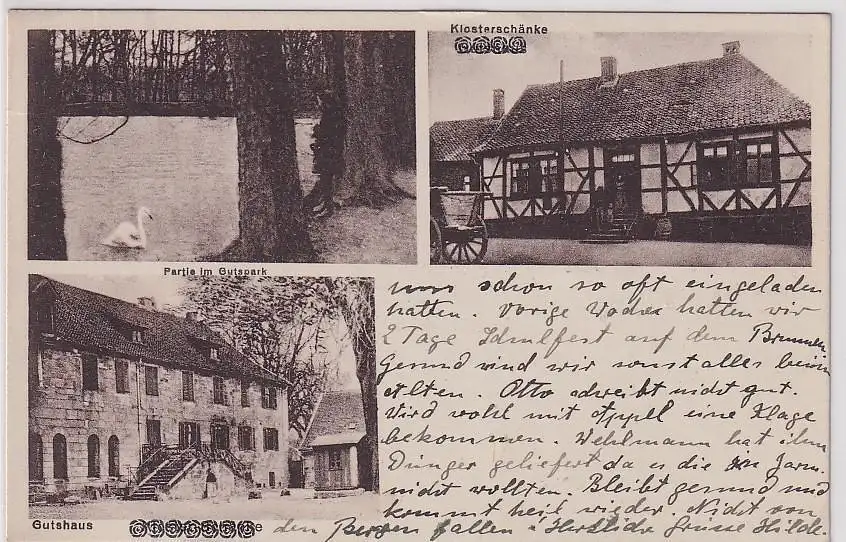 Klosterschänke
Partie im Gutspark
uns schon so oft eingeladen
hatten. Vorige Woche hatten wir
2 Tage Schulfest auf dem Brunnen
Gesund sind wir sonst alles beim
Alten. Otto schreibt nicht gut.
Wird wohl mit Appel eine Klage
bekommen. Wehlmann hat ihm
Dünger geliefert da es die
nicht wollten. Bleibt gesund und
kommt heil wieder. Nicht von
Gutshaus
den Bergen fallen! Herzliche Grüsse Hilde.